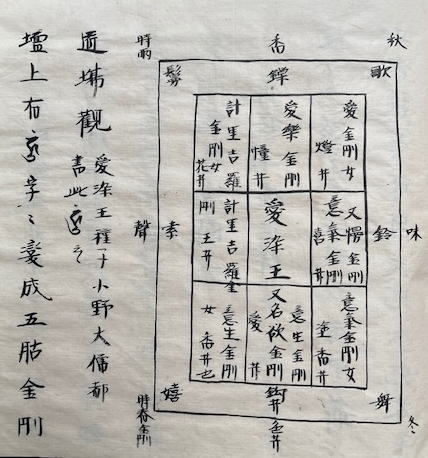 秋
香
時雨
歌
鏁
鬘
味
鈴
聲
索
冬
舞
鈎𦬇
色𦬇
嬉
時春金剛
愛金剛女
燈𦬇
愛樂金剛
幢𦬇
計里吉羅
金剛女
花𦬇
又慢金剛
意氣金剛
喜𦬇
愛染王
計里吉羅金
剛王𦬇
意氣金剛女
塗香𦬇
意生金剛
又名欲金剛
愛𦬇
意生金剛
女香𦬇也
道場觀
愛染王種子小野大僧都
書此
壇上有字變成五胋金剛